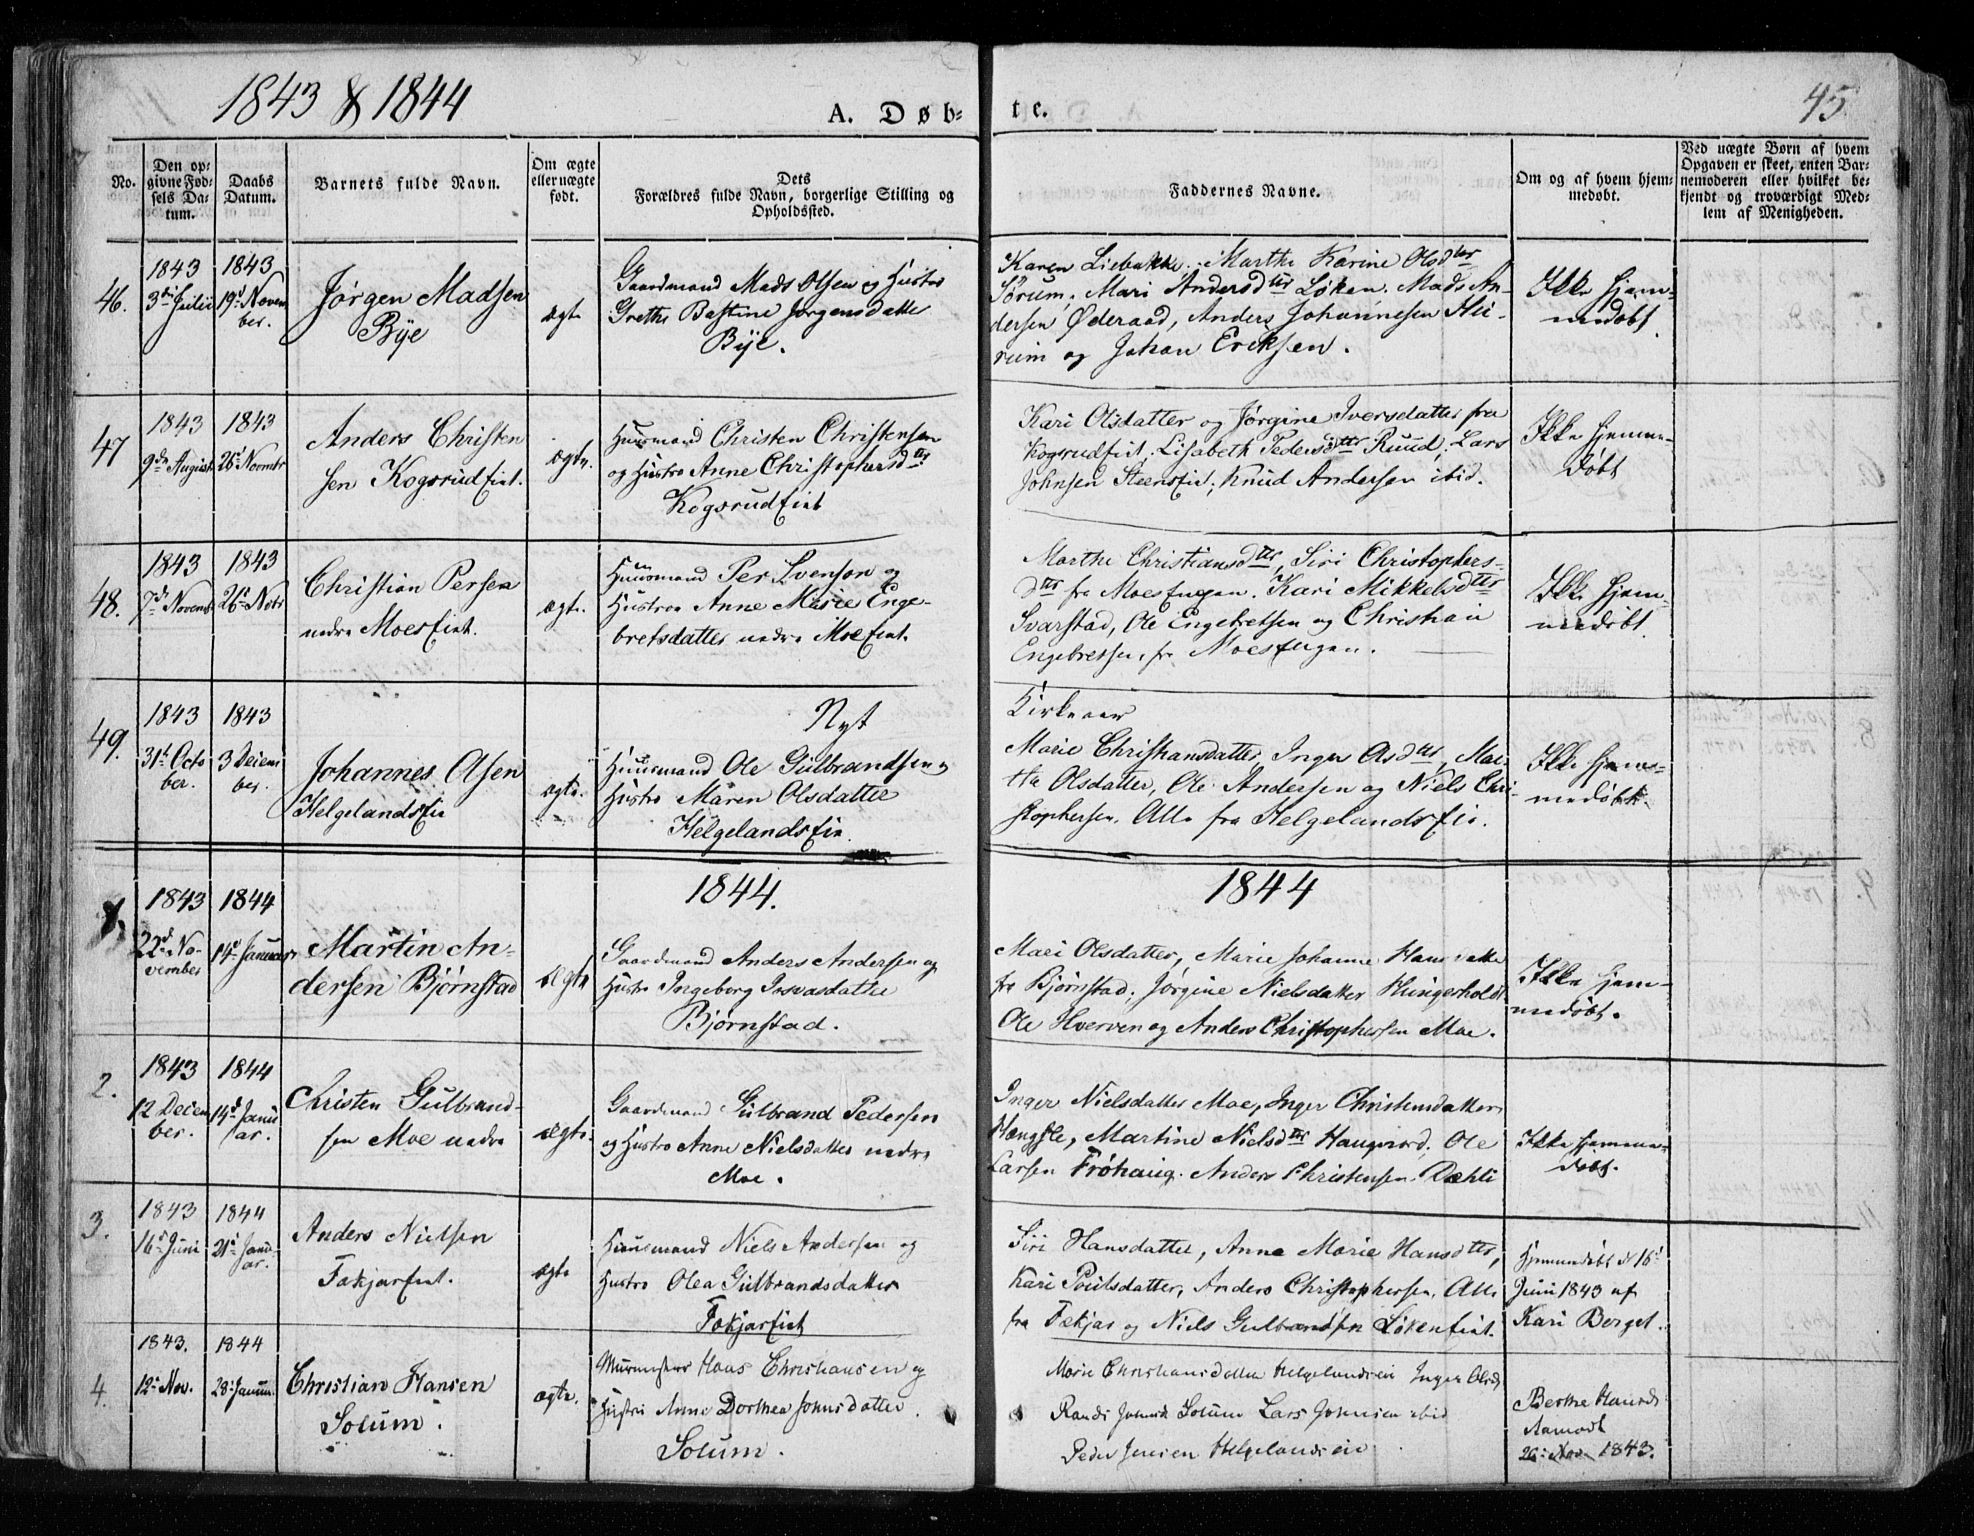 1843 & 1844
A. Døb-
te.
45.
No.
Den op-
givne Fød-
sels Da-
tum.
Daabs
Datum.
Barnets fulde Navn.
Om ægte
eller uægte
født.
Dets
Forældres fulde Navn, borgerlige Stilling og
Opholdssted.
Faddernes Navne.
Om og af hvem hjem-
medøbt.
Ved uægte Børn af hvem
Opgaven er skeet, enten Bar-
nemoderen eller hvilket be-
kjendt og troværdigt Med-
lem af Menigheden.
46.
1843
3die Julii
1843
19d Novem
ber.
Jørgen Madsen
Bye
ægte
Gaardmand Mads Olsen og Hustru
Grethe Bastine Jørgensdatter
Bye.
Karen Liebakke. Marthe Karine Olsdtr
Sørum. Mari Andersdtr Løken. Mads An-
dersen Øderaad, Anders Johannesen
og Johan Eriksen.
Ikke hjem-
medøbt.
47
1843
9de August
1843
26d Novembr
Anders Christen
sen Kogsrudeiet.
ægte.
Huusmand Christen Christensen
og Hustro Anne Christophersdtr
Kogsrudeiet
Kari Olsdatter og Jørgine Iversdatter fra
Kogsrudeiet, Lisabeth Pedersdtr Ruud, Lars
Johnsen Steenseie, Knud Andersen ibid.
Ikke hjemme-
døbt
48.
1843
7d Novemb
1843
26d Nobr
Christian Persen
nedre Moeseiet.
ægte.
Huusmand Per Svenson og
Hustroe Anne Marie Enge-
bretsdatter nedre Moeeiet.
Marthe Christiansdtr, Siri Christophers-
dtr fra Moesengen. Kari Mikkelsdtr
Svarstad, Ole Engebretsen og Christian
Engebretsen fr. Moesengen.
Ikke hjem-
medøbt.
49.
1843
31d Octo
ber.
1843
3 Decem
ber.
Johannes Olsen
Helgelandseie
ægte.
Nyt
Huusmand Ole Gulbrandsen og
Hustro Maren Olsdatter
Helgelandseie.
Kirkeaar
Marie Christiansdatter, Inger Olsdtr, Mar-
the Olsdatter, Ole Andersen og Niels Chri-
stophersen. Alle fra Helgelandseie.
Ikke hjem-
medøbt.
1844.
1844
1.
1843
22d No-
vember
1844
14d Januar
Martin An-
dersen Bjørnstad
ægte
Gaardmand Anders Andersen og
Hustro Ingeborg
Bjørnstad.
Mari Olsdatter, Marie Johanne Hansdatter
fra Bjørnstad; Jørgine Nielsdatter Hungerholdt
Ole Hverven og Anders Christophersen Moe.
Ikke hjem-
medøbt.
2.
1843
12 Decem
ber.
1844
14d Janu
ar.
Christen Gulbrand-
sen Moe nedre
ægte.
Gaardmand Gulbrand Pedersen
og Hustro Anne Nielsdatter nedre
Moe.
Inger Nielsdatter Moe, Inger Christensdatter
Hængsle, Martine Nielsdtr Haugerord. Ole
Larsen Frøhaug. Anders Christensen Dæhli
Ikke hjemme-
døbt.
3.
1843
16d Juni
1844
21d Janu-
ar.
Anders Nielsen
Fokjareiet.
ægte
Huusmand Niels Andersen og
Hustro Olea Gulbrandsdatter
Fokjareiet
Siri Hansdatter, Anne Marie Hansdtr,
Kari Poulsdatter, Anders Christophersen. Alle
fra Fokjar og Niels Gulbrandsen Løkeneiet.
Hjemmedøbt d. 16d
Juni 1843 af
Kari Berget.
4.
1843.
12te Nov.
1844
28de Januar.
Christian Hansen
Solum.
ægte.
Muurmester Hans Christiansen og
Hustru Anne Dorthea Johnsdatter.
Solum.
Marie Christiansdatter Helgelandseie Inger Olsd.
Randi Johnsd. Solum Lars Johnsen ibid
Peder Jensen Helgelandseie
Berthe Hansd.
Aamodt
26de Nov. 1843.